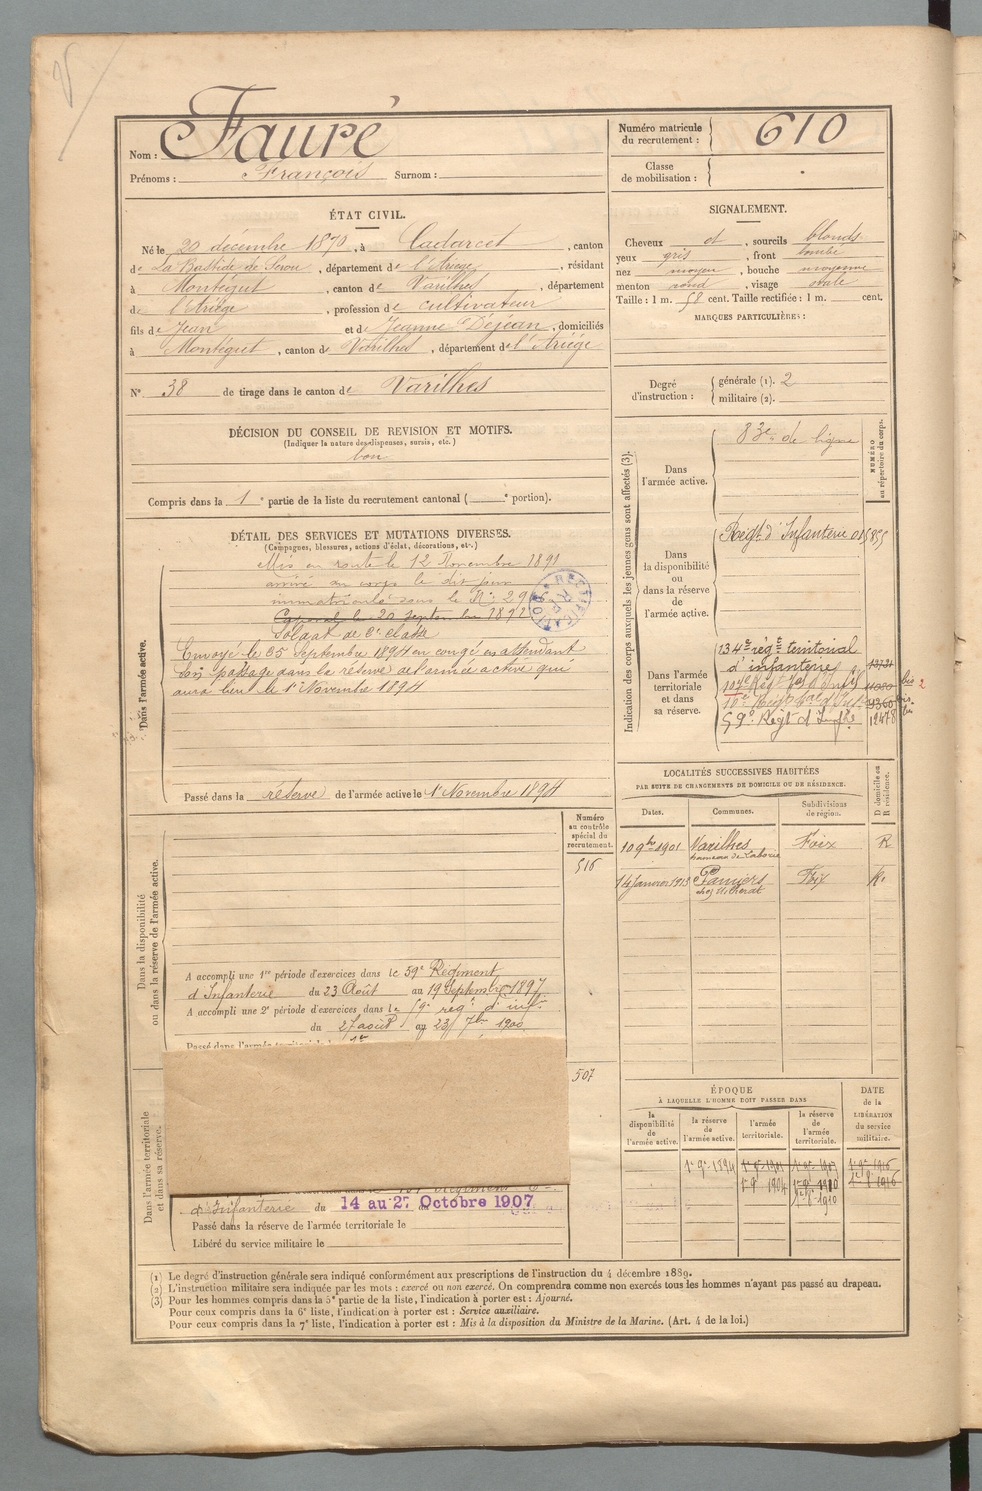 Nom : Fauré
Prénoms : François Surnom :
Numéro matricule du recrutement : 610
Classe de mobilisation :
ÉTAT CIVIL.
Né le 20 décembre 1870, à Cadarcet, canton
de La Bastide de Serou, département de l'Ariège, résidant
à Montégut, canton de Varilhes, département
de l'Ariège, profession de cultivateur
fils de Jean et de Jeanne Déjean, domiciliés
à Montégut, canton de Varilhes, département de l'Ariège
N° 38 de tirage dans le canton de Varilhes
DÉCISION DU CONSEIL DE REVISION ET MOTIFS.
(Indiquer la nature des dispenses, sursis, etc.)
bon
Compris dans la 1e partie de la liste du recrutement cantonal ( e portion).
SIGNALEMENT.
Cheveux et, sourcils blonds
yeux gris, front bombé
nez moyen, bouche moyenne
menton rond, visage ovale
Taille : 1 m. 58 cent. Taille rectifiée : 1 m. cent.
MARQUES PARTICULIÈRES :
Degré d'instruction : générale (1). 2
militaire (2).
DÉTAIL DES SERVICES ET MUTATIONS DIVERSES.
(Campagnes, blessures, actions d'éclat, décorations, etc.)
Dans l'armée active.
Mis en route le 12 Novembre 1891
arrivé au corps le dit jour
immatriculé sous le N°
Caporal le 20 Septembre 1892
Soldat de 2e classe
Envoyé le 25 Septembre 1894 en congé en attendant
son passage dans la réserve de l'armée active qui
aura lieu le 1er Novembre 1894
Passé dans la réserve de l'armée active le 1er Novembre 1894
Indication des corps auxquels les jeunes gens sont affectés (3).
NUMÉRO au répertoire du corps.
Dans l'armée active.
83e de ligne
Dans la disponibilité ou dans la réserve de l'armée active.
Régt d'Infanterie
Dans l'armée territoriale et dans sa réserve.
134e régt territorial
d'infanterie
59e Régt d'Infie 12478
LOCALITÉS SUCCESSIVES HABITÉES
PAR SUITE DE CHANGEMENTS DE DOMICILE OU DE RÉSIDENCE.
Dates. Communes. Subdivisions de région. D domicile ou R résidence.
10 9bre 1901 Varilhes Foix R
hameau de
14 Janvier 1913 Pamiers Foix R.
Dans la disponibilité ou dans la réserve de l'armée active.
Numéro au contrôle spécial du recrutement.
516
A accompli une 1re période d'exercices dans le 59e Régiment
d'Infanterie du 23 Août au 19 Septembre 1897
A accompli une 2e période d'exercices dans le 59e régt d'inf.
du 27 août au 23 7bre 1900
Dans l'armée territoriale et dans sa réserve.
507
d'Infanterie du 14 au 27 Octobre 1907
Passé dans la réserve de l'armée territoriale le
Libéré du service militaire le
ÉPOQUE
À LAQUELLE L'HOMME DOIT PASSER DANS
la disponibilité de l'armée active.
la réserve de l'armée active.
l'armée territoriale.
la réserve de l'armée territoriale.
DATE de la LIBÉRATION du service militaire.
1er 9bre 1894
1er 9bre 1904
(1) Le degré d'instruction générale sera indiqué conformément aux prescriptions de l'instruction du 4 décembre 1889.
(2) L'instruction militaire sera indiquée par les mots : exercé ou non exercé. On comprendra comme non exercés tous les hommes n'ayant pas passé au drapeau.
(3) Pour les hommes compris dans la 5e partie de la liste, l'indication à porter est : Ajourné.
Pour ceux compris dans la 6e liste, l'indication à porter est : Service auxiliaire.
Pour ceux compris dans la 7e liste, l'indication à porter est : Mis à la disposition du Ministre de la Marine. (Art. 4 de la loi.)